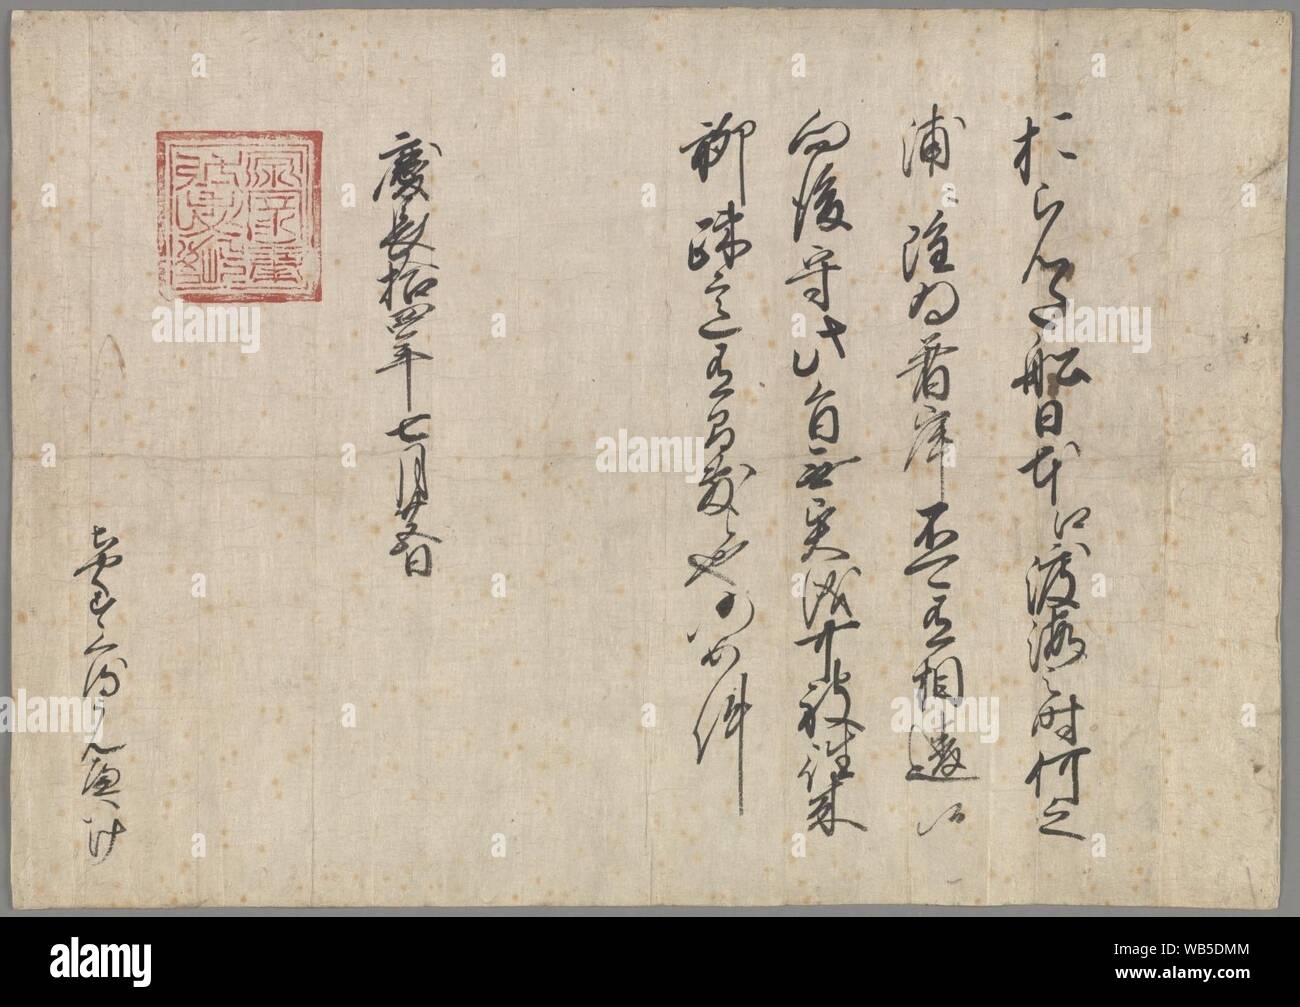 おらんた船日本江渡海之時何之
浦ニ雖為着岸不可有相違候
向後守此旨無異儀可被往来
聊疎意有間敷候也仍如件
慶長拾四年七月廿五日
源家康忠恕
ちやくすくるうんへいけ
alamy
Image ID: WB5DMM
www.alamy.com